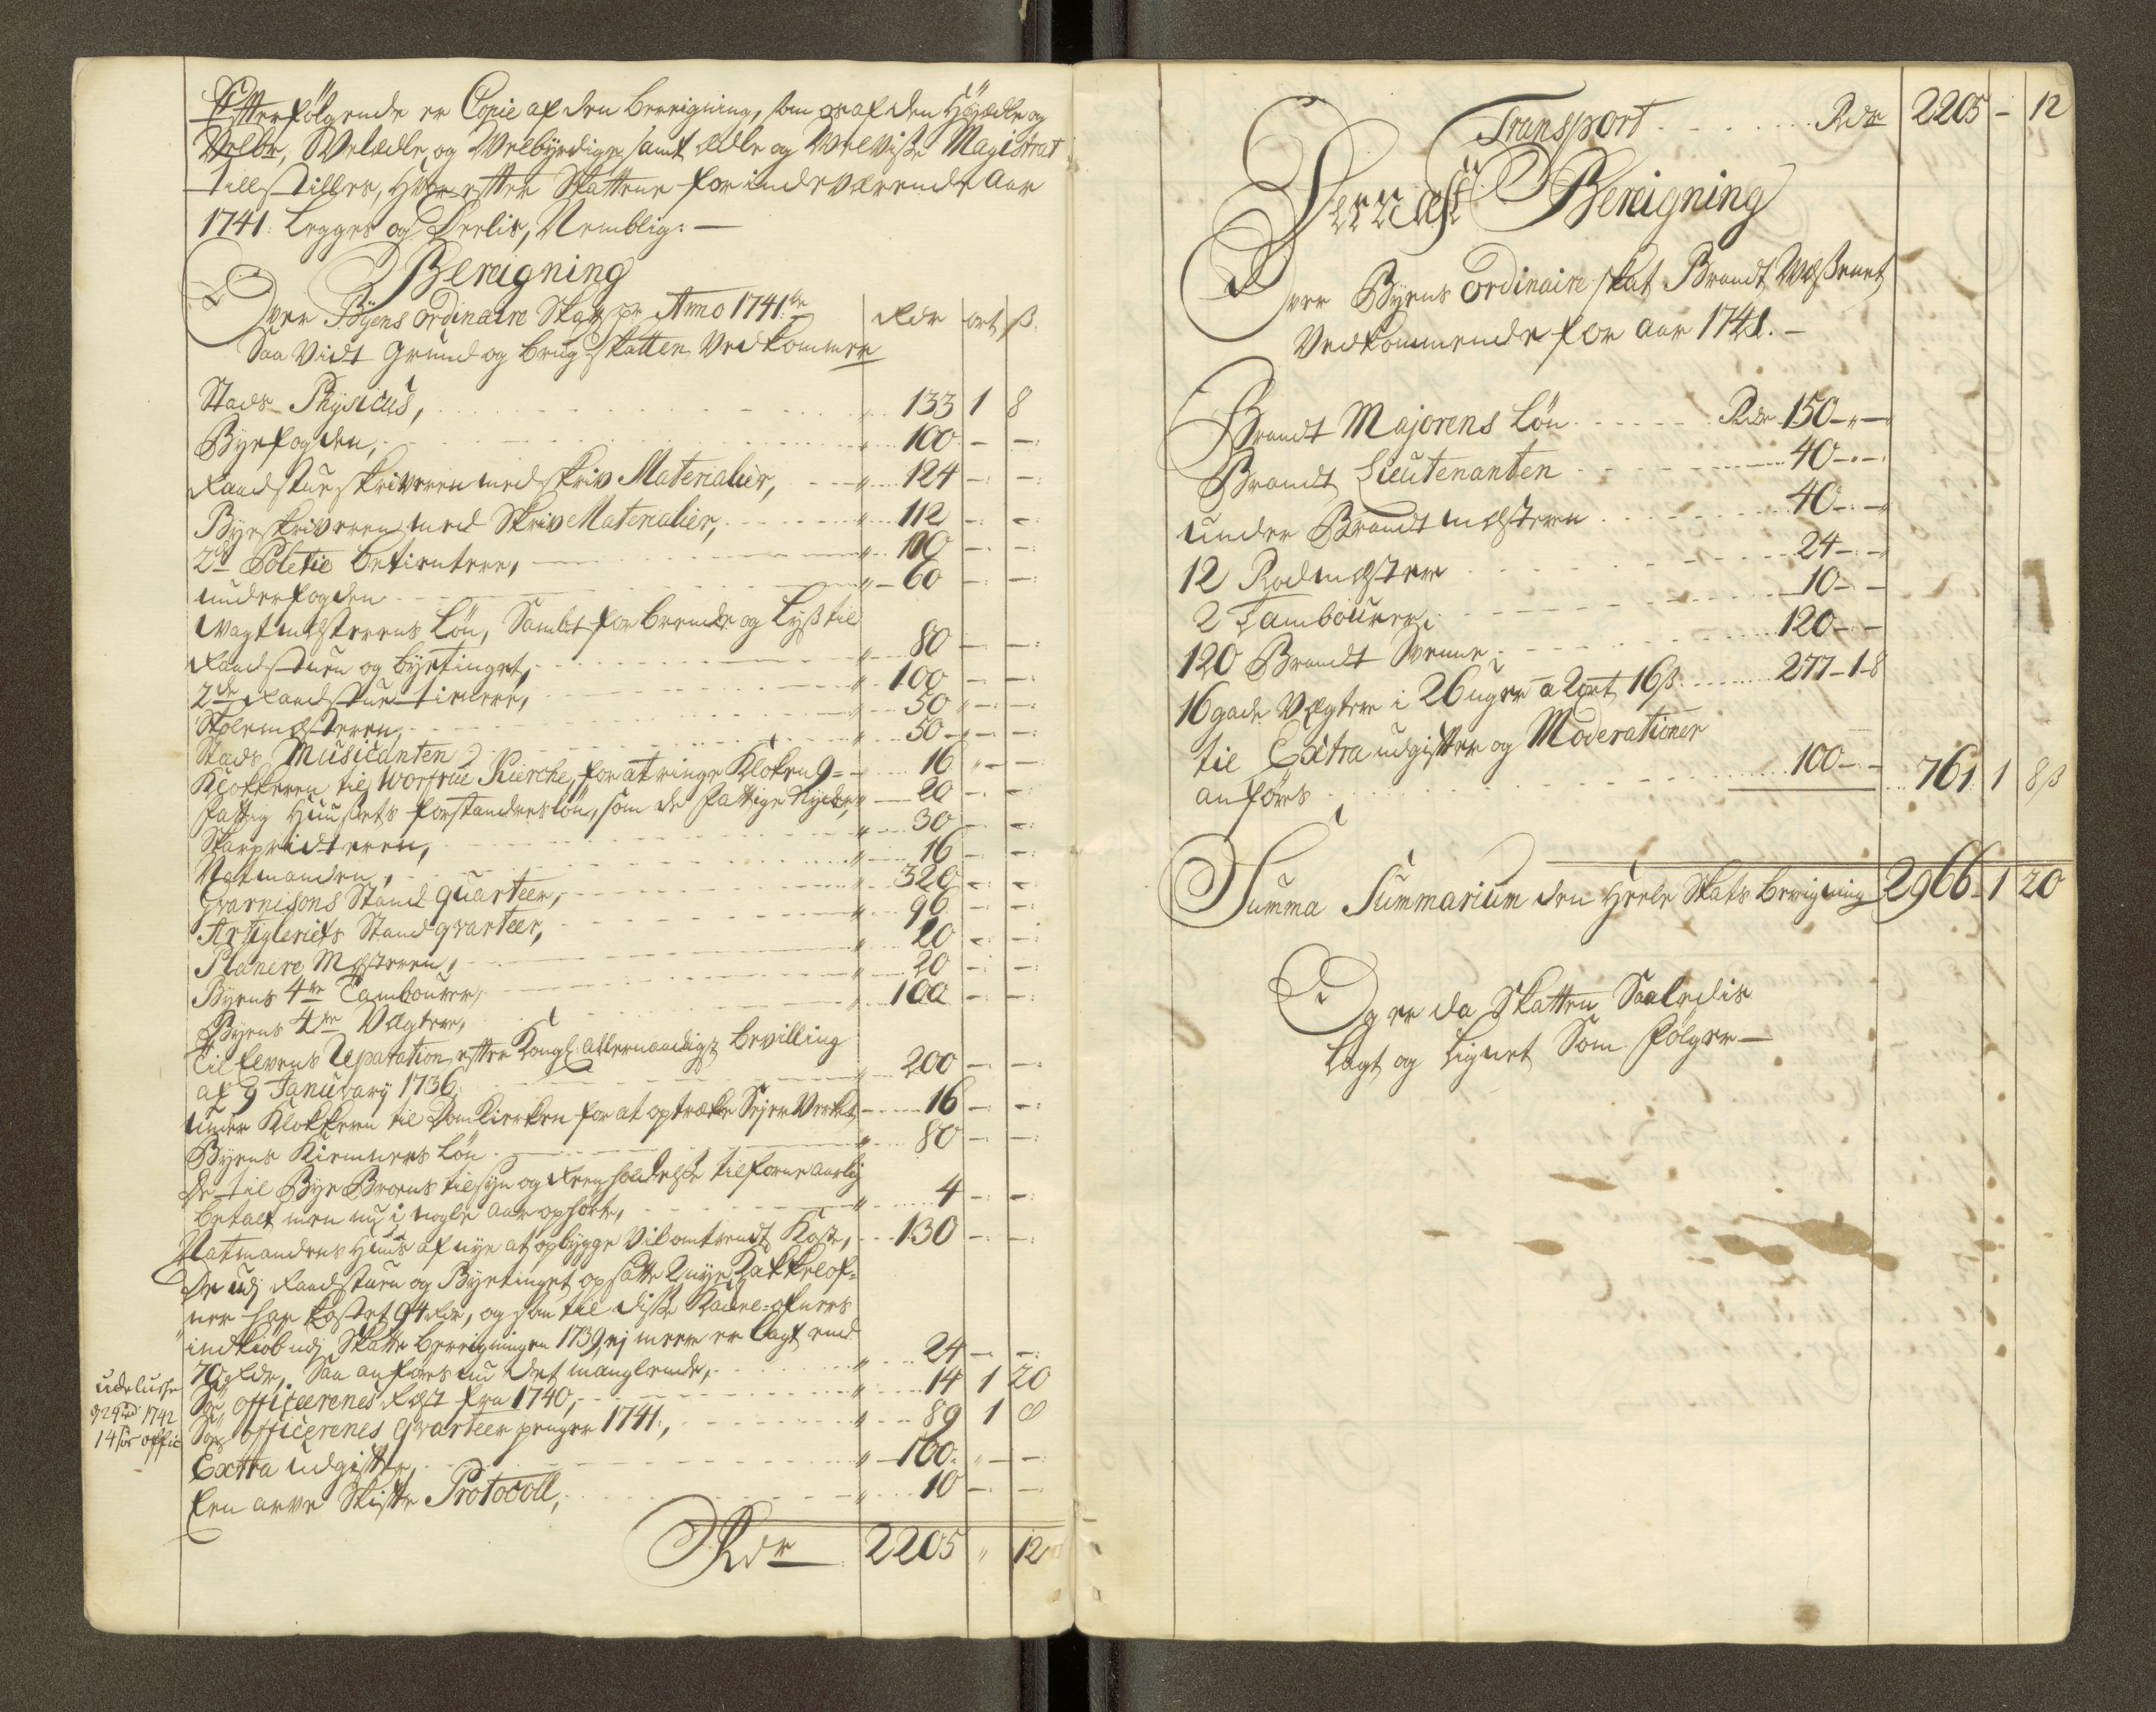 Efterfølgende er Copie af den Bereigning, som os af den Høyædle og
Velbr, Velædle, og Velbyrdige samt ædle og Velviise Magistrat
tillstilles, Hvor efter Skatterne for indeværende Aar
1741: Legges og Deelis, Nemblig: —
Bereigning
Over Byens ordinaire Skatt pr Anno 1741te
Saa Vidt Grund og brug skatten Vedkommer
Rdr ort ß.
Stads Physicus, 133 1 8
Byefogden, 100 - -
Raadstueskriveren med skriv Materialier, 124 - -
Byeskriveren med SkrivMaterialier, 112 - -
2de Poletie betientere, 100 - -
underfogden 60 - -
Vagtmesterens Løn, Sambt for brende og Lyß til
Raadstuen og byetinget, 80 - -
2de Raadstue tienere, 100 - -
Skolemesteren, 50 - -
Stads Musicanten 50 - -
Klokkeren til Worfrue Kierche, for at ringe Kloken 9 16 - -
Fattig Huusets forstanders løn, som de fattige nyder, 20 - -
Skarpridteren, 30 - -
Natmanden, 16 - -
Gvarnisons Stand quarteer, 320 - -
Artigleriets Stand qvarteer, 96 - -
Planere Mesteren, 20 - -
Byens 4re Tambourer, 20 - -
Byens 4re Vegtere, 100 - -
Til Elvens Reparation efter Kongl: allernaadigst bevilling
af 9 January 1736, 200 - -
Under Klokkeren til Domkierken for at optrække Seyer Verket 16 - -
Byens Kiemners Løn 80 - -
De til Bye Broens tilsyn og Reenholdelse tilforne aarlig
betalt men nu i nogle aar ophørte, 4 - -
Natmandens Huus af nye at opbygge Vil omtrendt koste, 130 - -
De udi Raadstuen og Byetinget opsatte 2 nye Kakkelof-
ner har kostet 94 Rdr, og som til disse Kackel-ofners
indkiøb udi Skatte bereigningen 1739 ej meere er lagt end
70 Rdr, Saa anføres nu det manglende, 24 - -
Søe officeerenes Rest fra 1740, 14 1 20
Søe officerenes qvarteer penger 1741, 89 1 8
Extra udgifter, 100 - -
Een arve Skifte Protocoll, 10 - -
Rdr 2205 " 12
udelucke
1742
14 søe offic
Transport Rdr 2205 - 12
Dernæst Bereigning
Over Byens ordinaire skat Brandt Væsenet
Vedkommende for aar 1741. —
Brandt Majorens Løn Rdr 150 - -
Brandt Lieutenanten 40 - -
Under Brandt mesteren 40 - -
12 Rodmestere 24 - -
2 Tambourer 10 - -
120 Brandt Svenne 120 - -
16 gade Vegtere i 26 uger a 2 ort 16ß 277-1-8
til Extra udgifter og Moderationer
anføres 100 - - 761 1 8ß
Summa Summarium den heele Skats bereigning 2966 - 1 20
Og er da Skatten Saaledis
Lagt og Lignet Som følger —